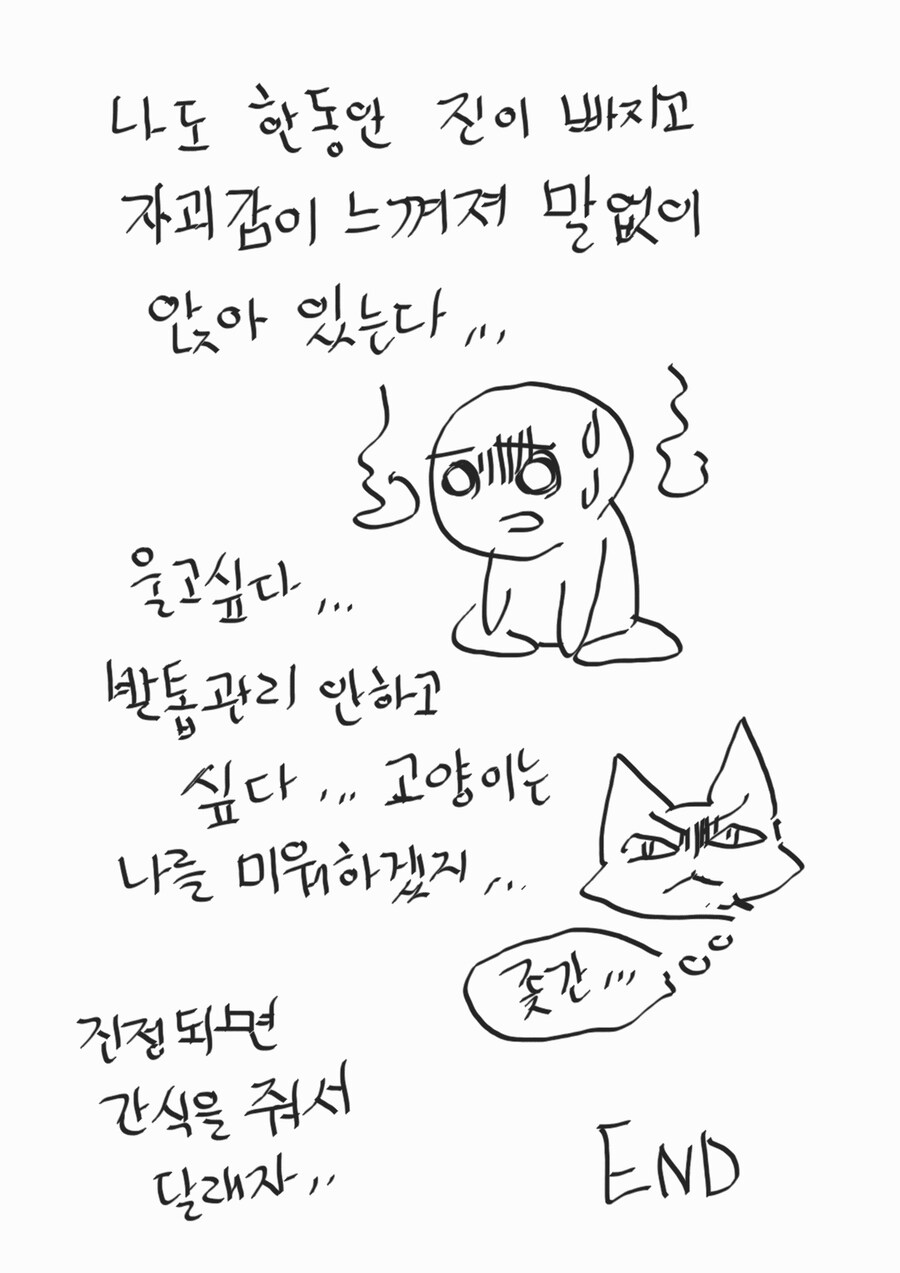 나도 한동안 진이 빠지고
자괴감이 느껴져 말없이
앉아 있는다...
울고싶다...
발톱관리 안하고
싶다... 고양이는
나를 미워하겠지...
좆간...
진정되면
간식을 줘서
달래자...
END